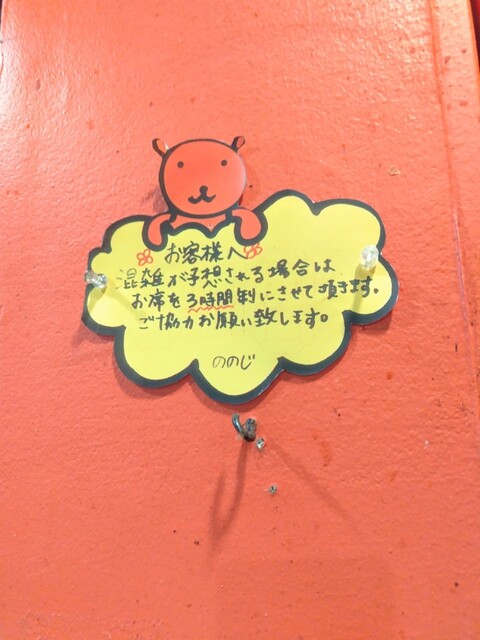 お客様へ
混雑が予想される場合は
お席を3時間制にさせて頂きます。
ご協力お願い致します。
ののじ